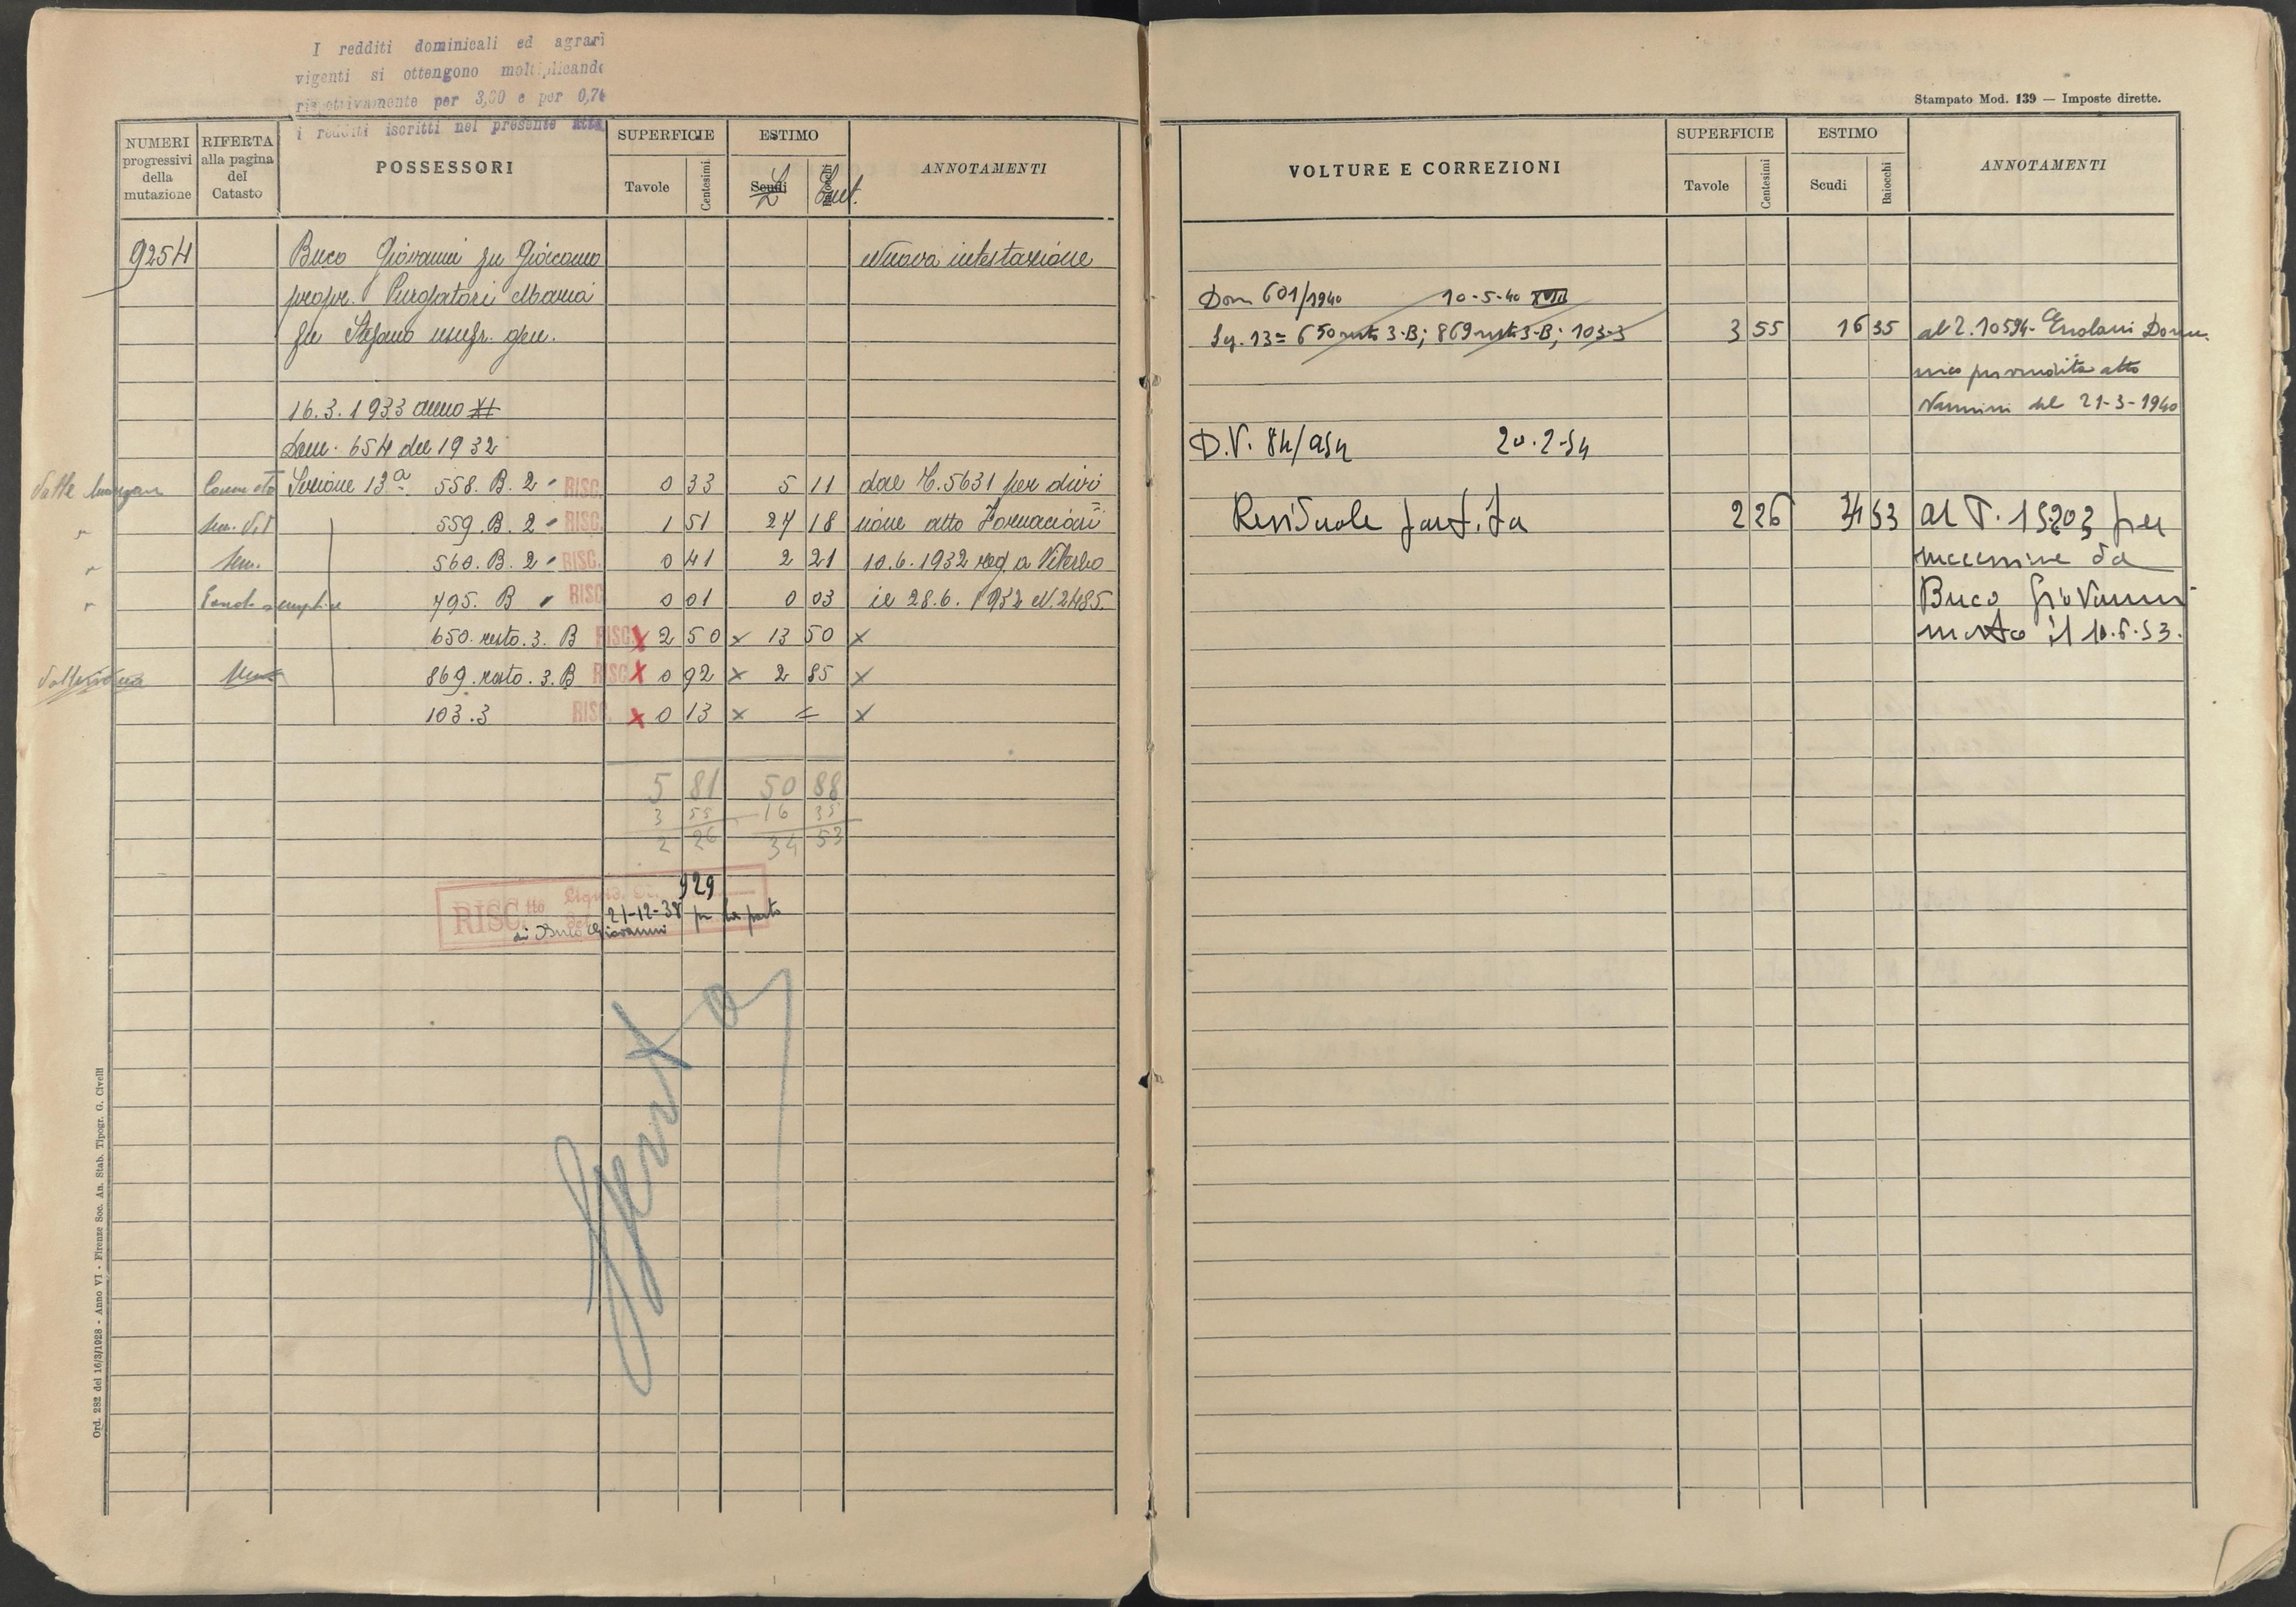 I redditi dominicali ed agrari
vigenti si ottengono moltiplicando
rispettivamente per 3,00 e per 0,7
i redditi iscritti nel presente atto
NUMERI progressivi della mutazione
RIFERTA alla pagina del Catasto
POSSESSORI
SUPERFICIE
Tavole
Centesimi
ESTIMO
Scudi
Baiocchi
L
Cent.
ANNOTAMENTI
9254 Buco Giovanni fu Giacomo Nuova intestazione
propr. Purgatori Maria
fu Stefano usufr. gen.
16.3.1933 anno XI
Dom. 654 del 1932
Valle Canneto Sezione 13ª 558. B. 2 RISC. 0 33 5 11 dal C. 5631 per divi
" Sem. Vit 559. B. 2 RISC. 1 51 27 18 sione atto Fornaciari
" Sem. 560. B. 2 RISC. 0 41 2 21 10.6.1932 reg. a Viterbo
" 795. B RISC 0 01 0 03 il 28.6.1932 N. 2485.
650. resto. 3. B RISC. x 2 50 x 13 50 x
Sem 869. resto. 3. B RISC x 0 92 x 2 85 x
103.3 RISC. x 0 13 x = x
5 81 50 88
3 55 16 35
2 26 34 53
RISC.tto Liquid. 929
del 21-12-38 per la parte
di Buco Giovanni
Spento
Ord. 282 del 16/3/1928 - Anno VI - Firenze Soc. An. Stab. Tipogr. G. Civelli
Stampato Mod. 139 — Imposte dirette.
VOLTURE E CORREZIONI
SUPERFICIE
Tavole
Centesimi
ESTIMO
Scudi
Baiocchi
ANNOTAMENTI
Dom 601/1940 10-5-40 XVIII
Sez. 13= 650 resto 3-B; 869 resto 3-B; 103-3 3 55 16 35 al 2. 10594- Ercolani Dome
nico per vendita atto
Nannini del 21-3-1940
D.V. 84/954 20-2-54
Residuale partita 2 26 34 53 al P. 15203 per
successione da
Buco Giovanni
morto il 10.6.53.